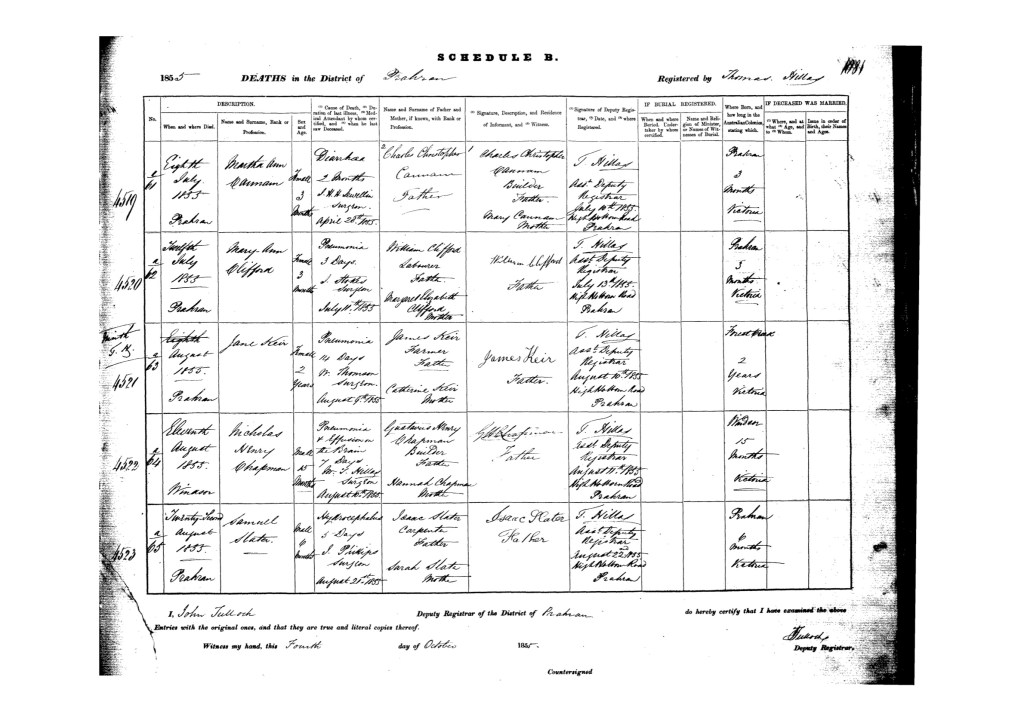 SCHEDULE B.
1855 DEATHS in the District of Prahran Registered by Thomas Hillas
No.
DESCRIPTION.
When and where Died.
Name and Surname, Rank or Profession.
Sex and Age.
(1) Cause of Death, (2) Duration of last Illness, (3) Medical Attendant by whom certified, and (4) when he last saw Deceased.
Name and Surname of Father and Mother, if known, with Rank or Profession.
(1) Signature, Description, and Residence of Informant, and (2) Witness.
(1) Signature of Deputy Registrar, (2) Date, and (3) where Registered.
IF BURIAL REGISTERED.
When and where Buried. Undertaker by whom certified.
Name and Religion of Minister, or Names of Witnesses of Burial.
Where Born, and how long in the Australian Colonies stating which.
IF DECEASED WAS MARRIED.
(1) Where, and at what (2) Age, and to (3) Whom.
Issue in order of Birth, their Names and Ages.
4519
a 61
Eighth
July
1855
Prahran
Martha Ann
Cannam
Female
3
Months
Diarrhœa
2 Months
Surgeon.
April 28th 1855
Charles Christopher
Cannam
Father
Charles Christopher
Cannam
Builder
Father.
Mary Cannam
Mother
T. Hillas
Asst. Deputy
Registrar
July 10th 1855.
High Holborn Road
Prahran
Prahran
3
Months
Victoria
4520
a 62
Twelfth
July
1855
Prahran
Mary Ann
Clifford
Female
3
Months
Pneumonia
3 Days.
J. Stokes
Surgeon
July 11th 1855
William Clifford
Labourer
Father
Margaret Elizabeth
Clifford
Mother
William Clifford
Father
T. Hillas
Asst Deputy
Registrar
July 13th 1855.
High Holborn Road
Prahran
Prahran
3
Months
Victoria
4521
a 63
Eighth
August
1855.
Prahran
Jane Keir
Female
2
Years
Pneumonia
14 Days
W. Thomson
Surgeon.
August 9th 1855
James Keir
Farmer
Father
Catherine Keir
Mother
James Keir
Father.
T. Hillas
Asst. Deputy
Registrar
August 10th 1855
High Holborn Road
Prahran
Forest Creek
2
Years
Victoria
4522
a 64
Eleventh
August
1855.
Windsor
Nicholas
Henry
Chapman
Male
15
Months
Pneumonia
& Effusion on
the Brain
7 Days
W. T. Hillas
Surgeon
August 10th 1855.
Gustavus Henry
Chapman
Builder
Father
Hannah Chapman
Mother
G H Chapman
Father
T. Hillas
Asst Deputy
Registrar
August 11th 1855
High Holborn Road
Prahran
Windsor
15
Months
Victoria
4523
a 65
Twenty Second
August
1855.
Prahran
Samuel
Slater.
Male
6
Months
Hydrocephalus
5 Days
Surgeon
August 21st 1855
Isaac Slater
Carpenter
Father
Sarah Slater
Mother
Isaac Slater
Father
T. Hillas
Asst Deputy
Registrar
August 22nd 1855
High Holborn Road
Prahran
Prahran
6
Months
Victoria
I, John Tulloch Deputy Registrar of the District of Prahran do hereby certify that I have examined the above
Entries with the original ones, and that they are true and literal copies thereof.
Witness my hand, this Fourth day of October 1855.
JTulloch
Deputy Registrar.
Countersigned